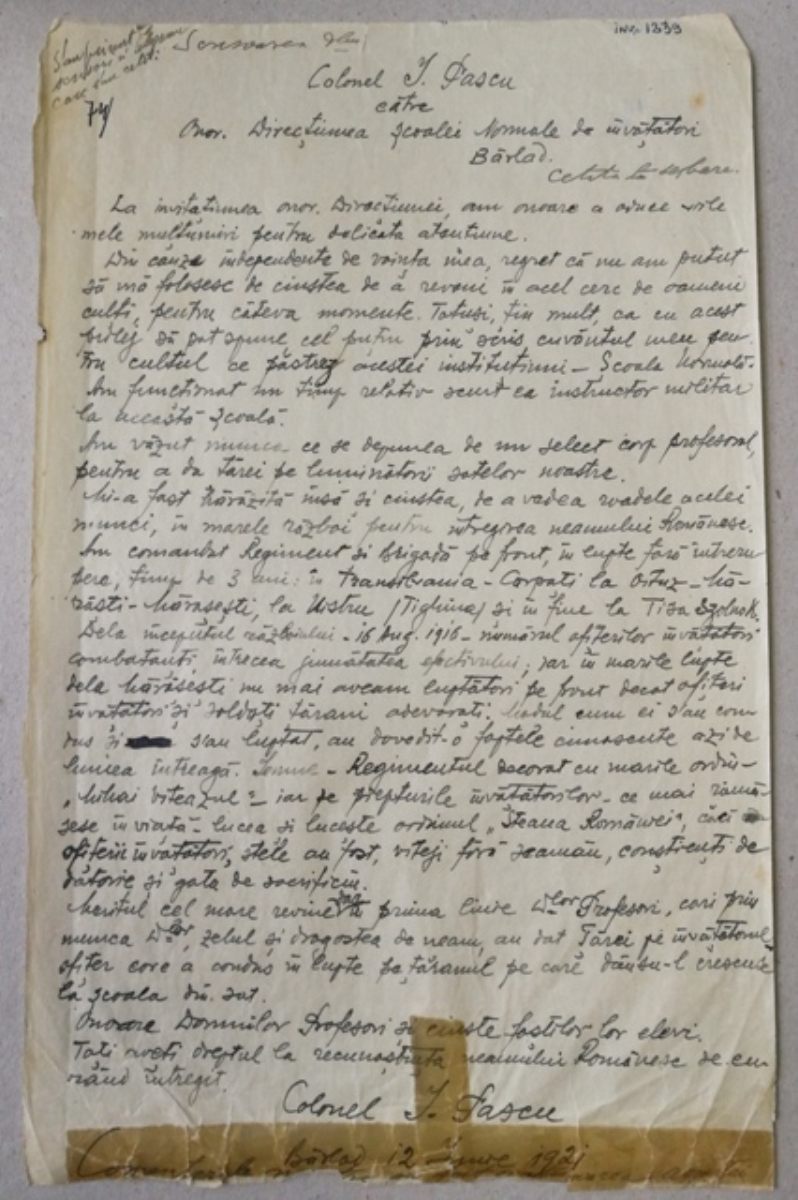 inv. 1339
Scrisoarea dlui
74/
Colonel I. Pascu
către
Onor. Direcțiunea Școalei Normale de învățători
Bârlad.
La invitațiunea onor. Direcțiunei, am onoare a aduce viile
mele mulțumiri pentru delicata atențiune.
Din cauze independente de voința mea, regret că nu am putut
să mă folosesc de cinstea de a reveni în acel cerc de oameni
culți, pentru câteva momente. Totuși, țin mult, ca cu acest
prilej să pot spune cel puțin prin scris, cuvântul meu pen-
tru cultul ce păstrez acestei instituțiuni – Școala Normală.
Am funcționat un timp relativ scurt ca instructor militar
la această școală.
Am văzut munca ce se depunea de un select corp profesoral,
pentru a da țărei pe luminătorii satelor noastre.
Mi-a fost hărăzită însă și cinstea, de a vedea roadele acelei
munci, în marele războiu pentru întregirea neamului Românesc.
Am comandat Regiment și brigadă pe front, în lupte fără întreru-
pere, timp de 3 ani: în Transilvania – Carpați la Oituz – Mă-
răști – Mărășești, la Nistru (Tighina) și în fine la Tisa Szolnok.
Dela începutul războiului – 16 Aug. 1916 – numărul ofițerilor învățători
combatanți, întrecea jumătatea efectivului; iar în marile lupte
dela Mărășești nu mai aveam luptători pe front decât ofițeri
învățători și soldați țărani adevărați. Modul cum ei s'au con-
dus și s'au luptat, au dovedit-o faptele cunoscute azi de
lumea întreagă. – Regimentul decorat cu marele ordin –
„Mihai Viteazul" – iar pe piepturile învățătorilor – ce mai rămă-
sese în viață – lucea și lucește ordinul „Steaua României", căci
ofițerii învățători, au fost, viteji fără seamăn, conștienți de
datorie și gata de sacrificiu.
Meritul cel mare revine în prima linie Dlor Profesori, cari prin
munca Dlor, zelul și dragostea de neam, au dat Țărei pe învățătorul
ofițer care a condus în lupte pe țăranul pe care dânsu-l crescuse
la școala din sat.
Onoare Domnilor Profesori și cinste foștilor lor elevi.
Toți aveți dreptul la recunoștința neamului Românesc de cu-
rând întregit.
Colonel I. Pascu
Bârlad 12 Iunie 1921